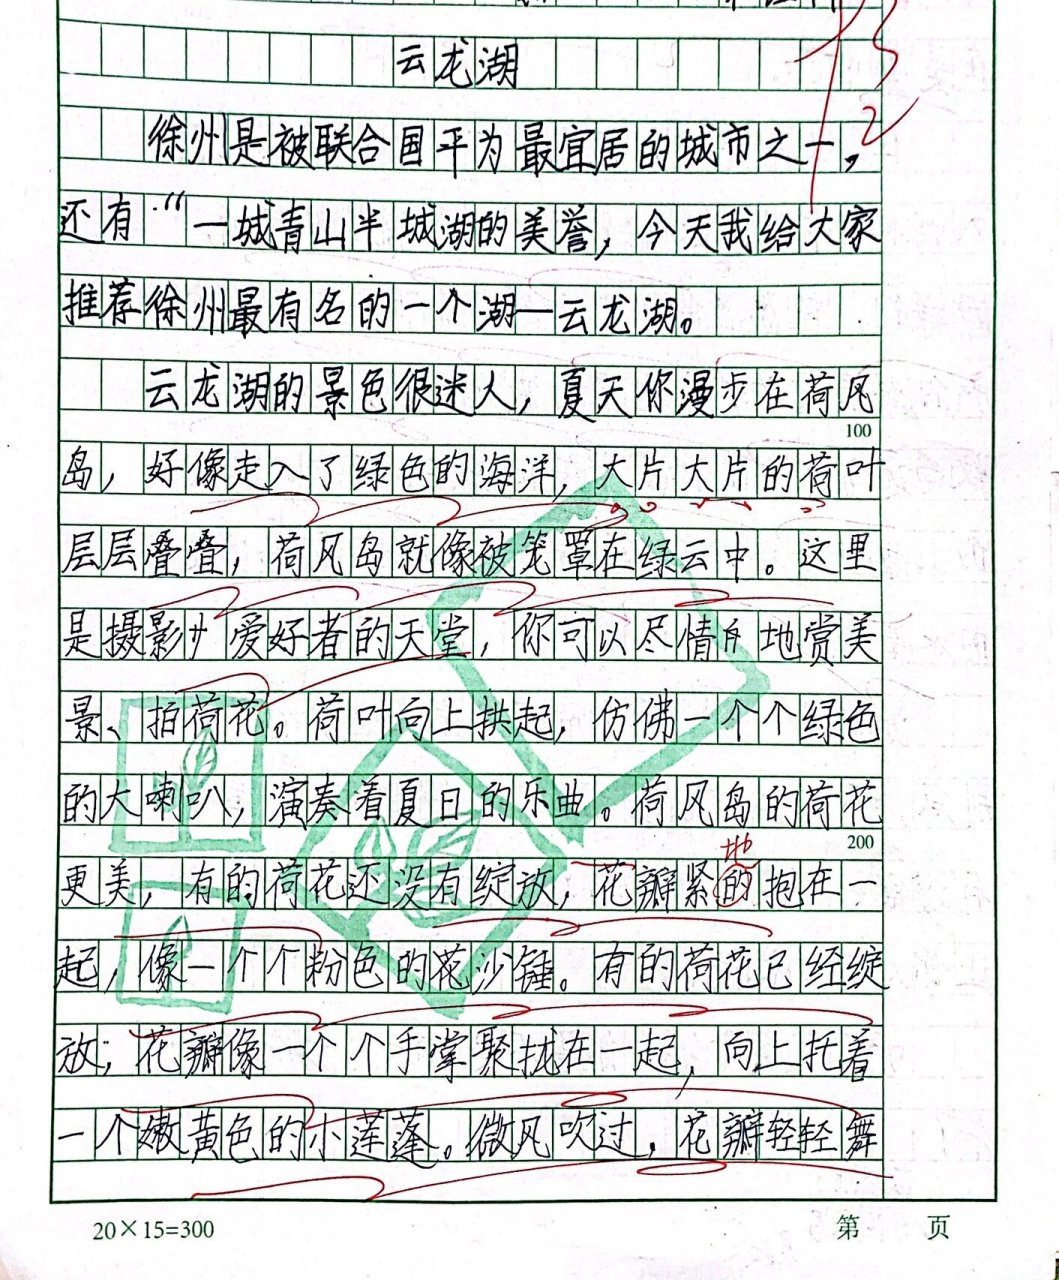 云龙湖
徐州是被联合国平为最宜居的城市之一,
还有“一城青山半城湖的美誉,今天我给大家
推荐徐州最有名的一个湖—云龙湖。
云龙湖的景色很迷人,夏天你漫步在荷风
100
岛,好像走入了绿色的海洋,大片大片的荷叶
层层叠叠,荷风岛就像被笼罩在绿云中。这里
是摄影爱好者的天堂,你可以尽情地赏美
景、拍荷花。荷叶向上拱起,仿佛一个个绿色
的大喇叭,演奏着夏日的乐曲。荷风岛的荷花
200
地
更美,有的荷花还没有绽放,花瓣紧的抱在一
起,像一个个粉色的花沙锤。有的荷花已经绽
放,花瓣像一个个手掌聚拢在一起,向上托着
一个嫩黄色的小莲蓬。微风吹过,花瓣轻轻舞
20×15=300 第 页